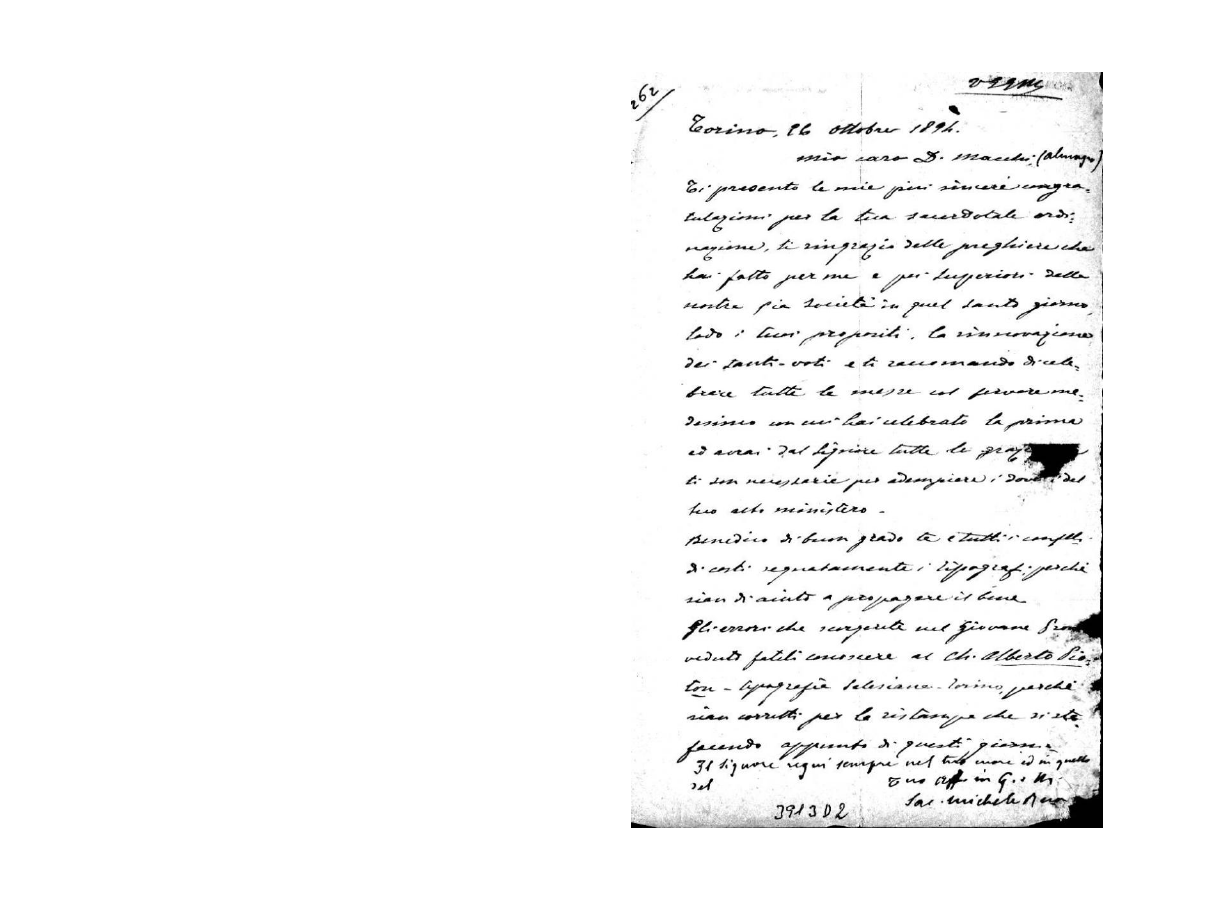 262/
Torino, 26 ottobre 1894.
Mio caro D. Macchi, (Almagro)
Ti presento le mie più sincere congra-
tulazioni per la tua sacerdotale ordi-
nazione, ti ringrazio delle preghiere che
hai fatto per me e pei Superiori della
nostra Pia Società in quel santo giorno,
lodo i tuoi propositi, la rinnovazione
dei santi voti e ti raccomando di cele-
brare tutte le messe col fervore me-
desimo con cui hai celebrato la prima
ed avrai dal Signore tutte le
ti son necessarie per adempiere i doveri del
tuo alto ministero -
Benedico di buon grado te e tutti i confli.
di costì segnatamente i tipografi perchè
sian di aiuto a propagare il bene
Gli errori che scorgerete nel Giovane Prov
veduto fateli conoscere al Ch. Alberto Pio-
ton - tipografia Salesiana - Torino, perchè
sian corretti per la ristampa che si sta
facendo appunto di questi giorni.
Il Signore regni sempre nel tuo cuore ed in quello
del
Tuo aff in G. e M.
Sac. Michele Rua
3913D2